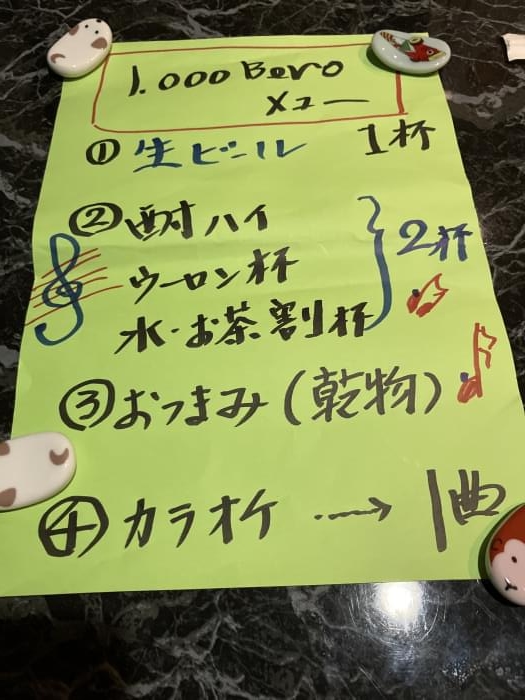 1.000 Bero
メュー
① 生ビール 1杯
② 酎ハイ
ウーロン杯
水・お茶割杯
2杯
③ おつまみ (乾物)
④ カラオケ ----> 1曲